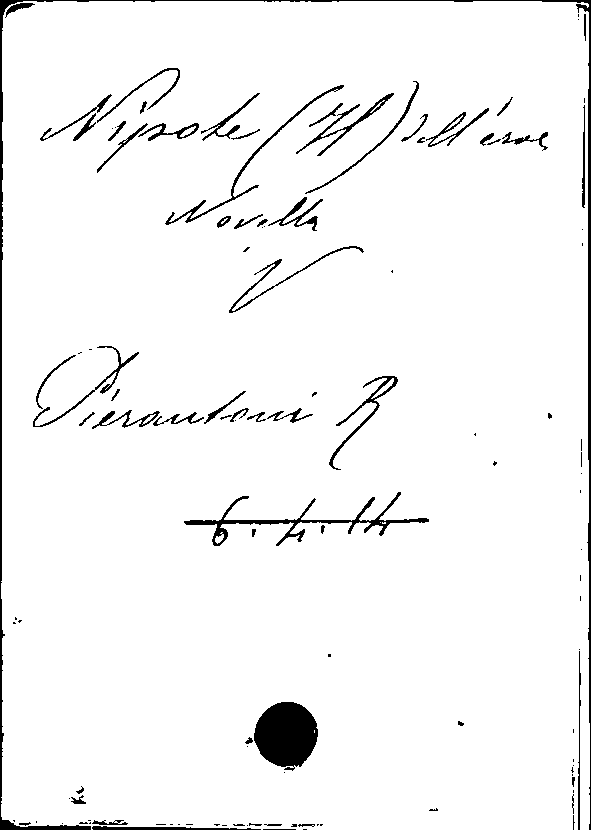 Nipote (Il) dell'eroe
Novella
V
Pierantoni R
6.4.14